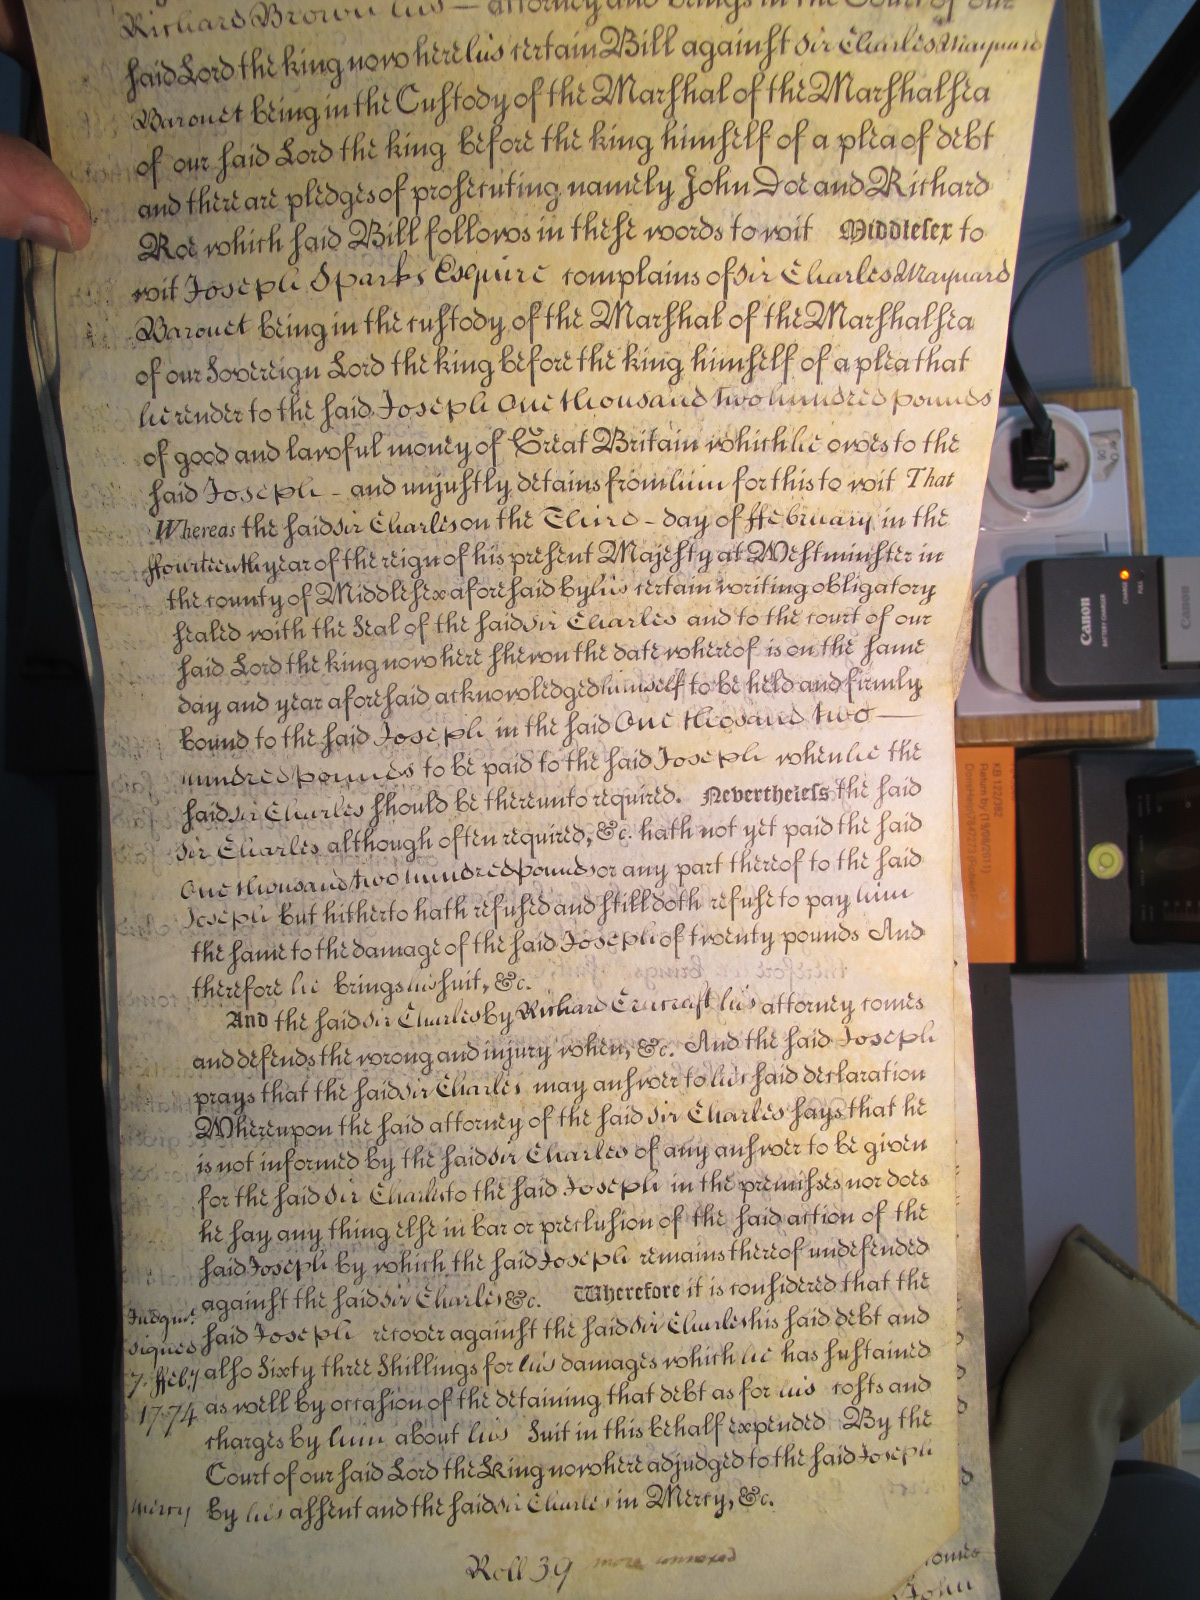 Richard Brown his — attorney and brings in the Court of our
said Lord the king now here his certain Bill against Sir Charles Maynard
Baronet being in the Custody of the Marshal of the Marshalsea
of our said Lord the king before the king himself of a plea of debt
and there are pledges of prosecuting namely John Doe and Richard
Roe which said Bill follows in these words to wit Middlesex to
wit Joseph Sparks Esquire complains of Sir Charles Maynard
Baronet being in the custody of the Marshal of the Marshalsea
of our Sovereign Lord the king before the king himself of a plea that
he render to the said Joseph One thousand two hundred pounds
of good and lawful money of Great Britain which he owes to the
said Joseph - and unjustly detains from him for this to wit That
Whereas the said Sir Charles on the Third - day of ffebruary in the
ffourteenth year of the reign of his present Majesty at Westminster in
the county of Middlesex aforesaid by his certain writing obligatory
sealed with the Seal of the said Sir Charles and to the court of our
said Lord the king now here shewn the date whereof is on the same
day and year aforesaid acknowledged himself to be held and firmly
bound to the said Joseph in the said One thousand two —
hundred pounds to be paid to the said Joseph when he the
said Sir Charles should be thereunto required. Nevertheless the said
Sir Charles although often required, &c. hath not yet paid the said
One thousand two hundred pounds or any part thereof to the said
Joseph But hitherto hath refused and still doth refuse to pay him
the same to the damage of the said Joseph of twenty pounds And
therefore he brings his suit, &c.
And the said Sir Charles by Richard his attorney comes
and defends the wrong and injury when, &c. And the said Joseph
prays that the said Sir Charles may answer to his said declaration
Whereupon the said attorney of the said Sir Charles says that he
is not informed by the said Sir Charles of any answer to be given
for the said Sir Charles to the said Joseph in the premisses nor does
he say any thing else in bar or preclusion of the said action of the
said Joseph by which the said Joseph remains thereof undefended
against the said Sir Charles &c. Wherefore it is considered that the
Judgmt.
signed
7. ffeby
1774
said Joseph recover against the said Sir Charles his said debt and
also Sixty three Shillings for his damages which he has sustained
as well by occasion of the detaining that debt as for his costs and
charges by him about his Suit in this behalf expended By the
Court of our said Lord the King now here adjudged to the said Joseph
Mercy
by his assent and the said Sir Charles in Mercy, &c.
Roll 39 more annexed
comes
John
Canon
BATTERY CHARGER
CHARGE
FULL
Canon
KB 122/392
Return by (19/09/2011)